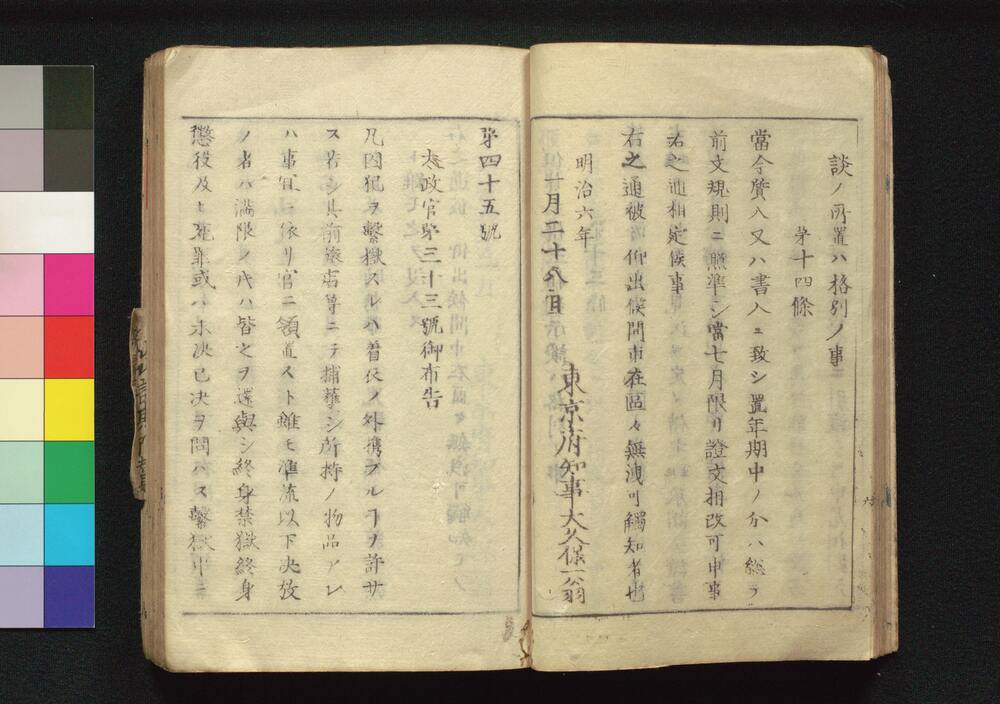 談ノ所置ハ格別ノ事
第十四條
當今質入又ハ書入ニ致シ置年期中ノ分ハ総テ
前文規則ニ照準シ當七月限リ證文相改可申事
右之通相定候事
右之通被 仰出候間市在區々無洩可觸知者也
明治六年
一月二十八日
東京府知事大久保一翁
第四十五號
太政官第三十三號御布告
凡囚犯ヲ繋獄スルハ着衣ノ外携フルヿヲ許サ
ス若シ其前旅店等ニテ捕獲シ所持ノ物品アレ
ハ事宜ニ依リ官ニ領置スト雖モ準流以下決放
ノ者ハ満限ノ代ハ皆之ヲ還與シ終身禁獄終身
懲役及ヒ死罪或ハ未決已決ヲ問ハス繋獄中ニ